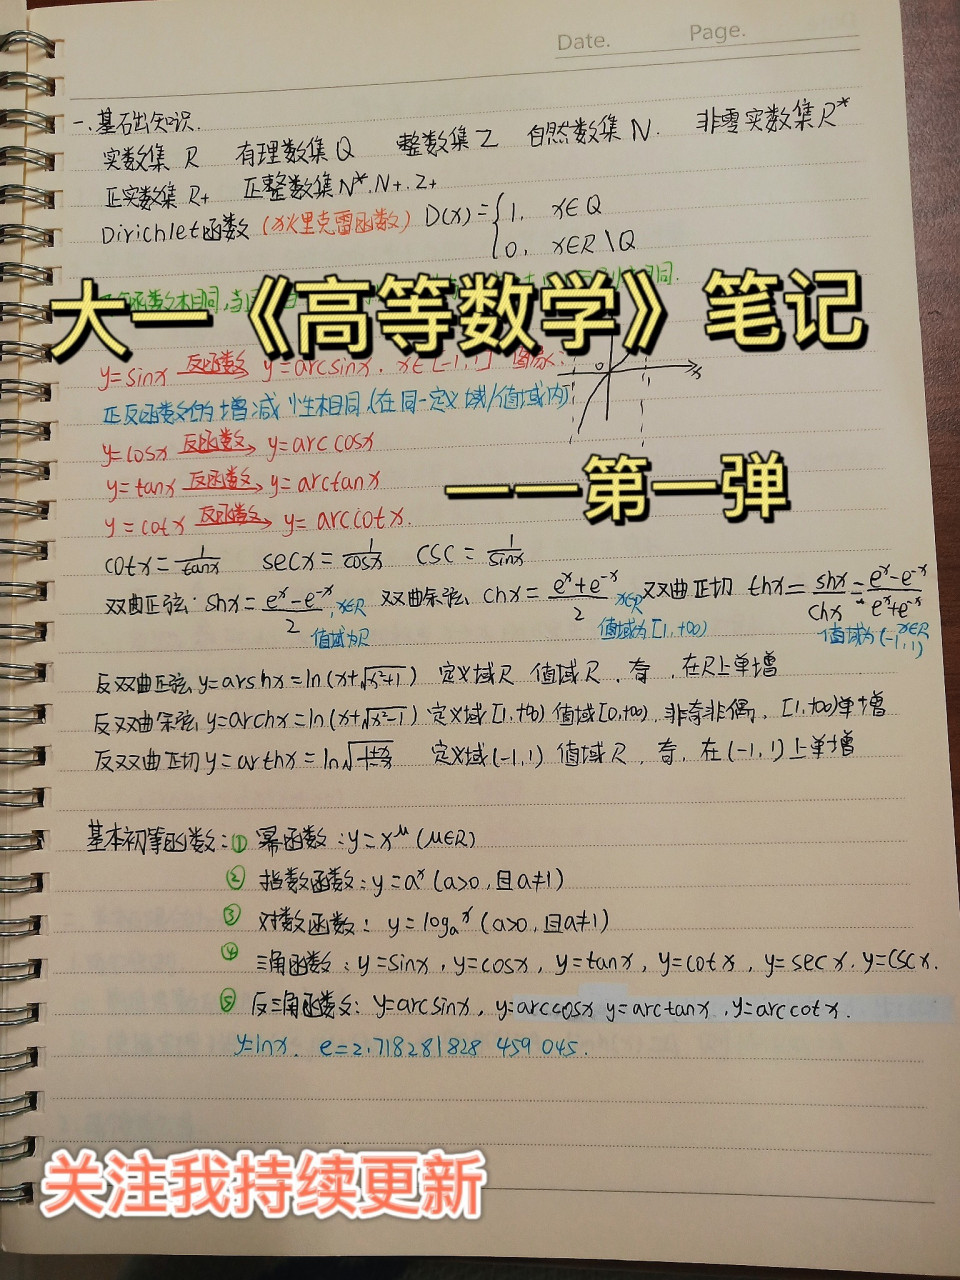 Date. Page.
一、基础知识.
实数集 R 有理数集 Q 整数集 Z 自然数集 N. 非零实数集 R*
正实数集 R+ 正整数集 N*. N+. Z+
Dirichlet函数 (狄里克雷函数) D(x) = { 1, x∈Q
0, x∈R\Q
函数相同,当
大一《高等数学》笔记
y=sinx 反函数→ y=arcsinx, x∈[-1,1] 图象:
O x
正反函数的增减性相同(在同一定义域/值域内)
y=cosx 反函数→ y=arccosx
y=tanx 反函数→ y=arctanx
——第一弹
y=cotx 反函数→ y=arccotx.
cotx=1/tanx secx=1/cosx csc=1/sinx
双曲正弦: shx=(e^x-e^-x)/2, x∈R 双曲余弦 chx=(e^x+e^-x)/2 x∈R 双曲正切 thx=shx/chx=(e^x-e^-x)/(e^x+e^-x)
值域为R 值域为[1,+∞) 值域为(-1,1) x∈R
反双曲正弦 y=arshx=ln(x+√(x²+1)) 定义域R 值域R, 奇, 在R上单增
反双曲余弦 y=archx=ln(x+√(x²-1)) 定义域[1,+∞) 值域[0,+∞), 非奇非偶, [1,+∞)单增
反双曲正切 y=arthx=ln√((1+x)/(1-x)) 定义域(-1,1) 值域R, 奇, 在(-1,1)上单增
基本初等函数:① 幂函数:y=x^μ (μ∈R)
② 指数函数:y=a^x (a>0,且a≠1)
③ 对数函数: y=log_a^x (a>0,且a≠1)
④ 三角函数:y=sinx, y=cosx, y=tanx, y=cotx, y=secx. y=cscx.
⑤ 反三角函数: y=arcsinx, y=arccosx y=arctanx, y=arccotx.
y=lnx. e=2.718281828 459 045.
关注我持续更新